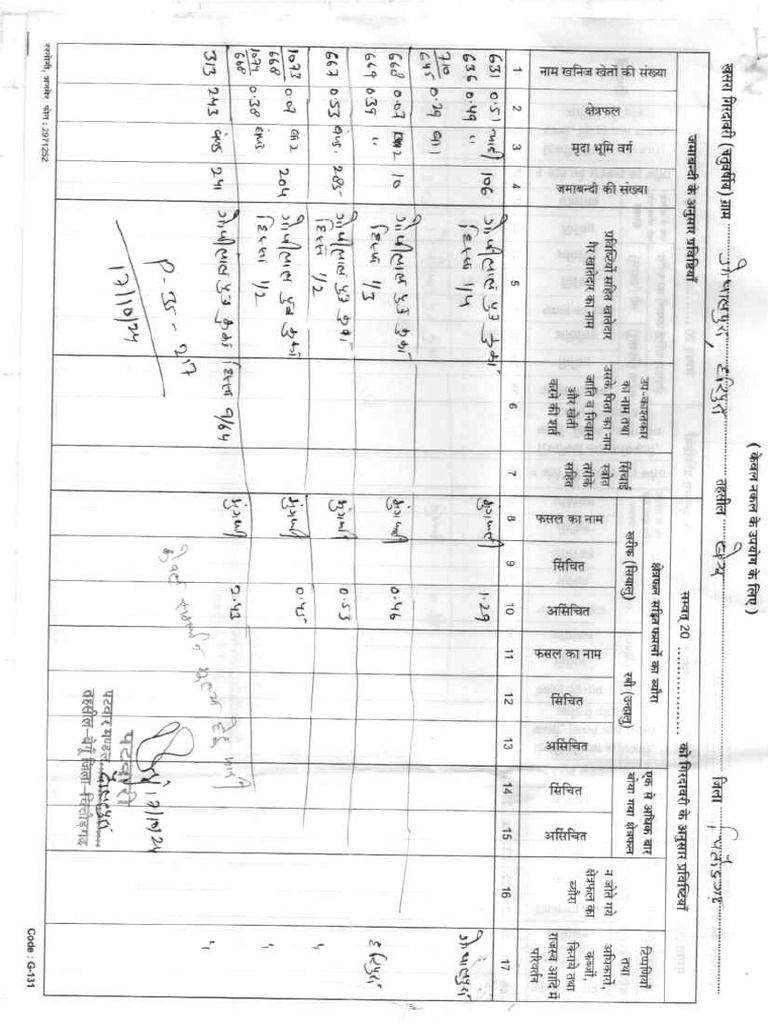 ( केवल नकल के उपयोग के लिए )
खसरा गिरदावरी (चतुवर्षीय) ग्राम गोपालपुरा, हरिपुरा तहसील बेगू जिला चित्तौड़गढ़
जमाबन्दी के अनुसार प्रविष्टियाँ
सम्वत् 20 को गिरदावरी के अनुसार प्रविष्टियाँ
क्षेत्रफल सहित फसलों का ब्यौरा
खरीफ (सियालु)
रबी (उन्हालु)
एक से अधिक बार बोया गया क्षेत्रफल
नाम खनिज खेतों की संख्या
क्षेत्रफल
मृदा भूमि वर्ग
जमाबन्दी की संख्या
प्रविष्टियों सहित खातेदार
गैर खातेदार का नाम
उप-काश्तकार
का नाम तथा
उसके पिता का नाम
जाति व निवास
और खेती
करने की शर्त
सिंचाई
स्त्रोत
तरीके
सहित
फसल का नाम
सिंचित
असिंचित
फसल का नाम
सिंचित
असिंचित
सिंचित
असिंचित
न जोते गये
क्षेत्रफल का
ब्यौरा
टिप्पणियाँ
तथा
अधिकारों,
कब्जों,
किराये तथा
राजस्व आदि में
परिवर्तन
1 2 3 4 5 6 7 8 9 10 11 12 13 14 15 16 17
631 0.51 106 गोपीलाल पुत्र मूंगफली 1.29 गोपालपुरा
636 0.49 " हिस्सा 1/4
710/645 0.29
668 0.07 10 गोपीलाल पुत्र मूंगफली 0.46 हरिपुरा
669 0.39 " हिस्सा 1/3
667 0.53 285 गोपीलाल पुत्र 0.53 "
हिस्सा 1/2
1073/668 0.07 204 गोपीलाल पुत्र 0.45 "
1074/668 0.38 हिस्सा 1/2
313 2.43 241 गोपीलाल पुत्र हिस्सा 9/64 2.43 "
P-35-217
17/10/24
17/10/24
पटवारी
पटवार मण्डल
तहसील-बेगूँ जिला-चित्तौड़गढ़
रस्तोगी, अजमेर फोन : 2971252
Code : G-131